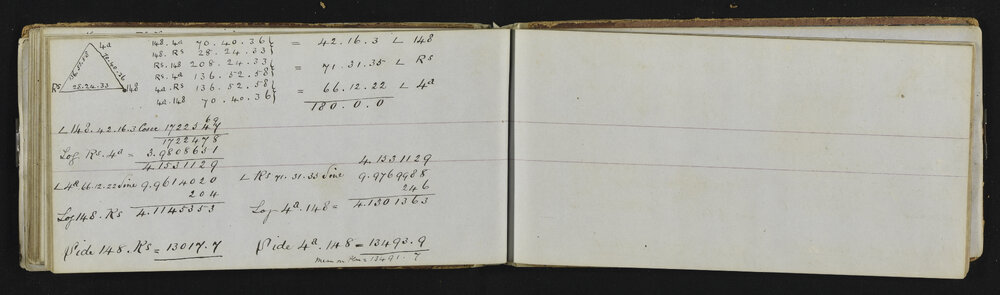 4a
148. 4a 70.40.36 } = 42.16.3 L 148
148. Rs 28.24.33
Rs. 148 208.24.33 } = 71.31.35 L Rs
Rs. 4a 136.52.58
4a. Rs 136.52.58 } = 66.12.22 L 4a
4a. 148 70.40.36
180.0.0
Rs 28.24.33 148
70.40.36
69
L 148. 42.16.3 Cosec 1722347
1722478
Log Rs. 4a = 3.9808651
4.1531129
L 4a 66.12.22 Sine 9.9614020
204
Log 148. Rs 4.1145353
Side 148. Rs = 13017.7
4.1531129
L Rs 71.31.35 Sine 9.9769988
246
Log 4a. 148 = 4.1301363
Side 4a. 148 = 13493.9
Mean on Plan = 13491.7